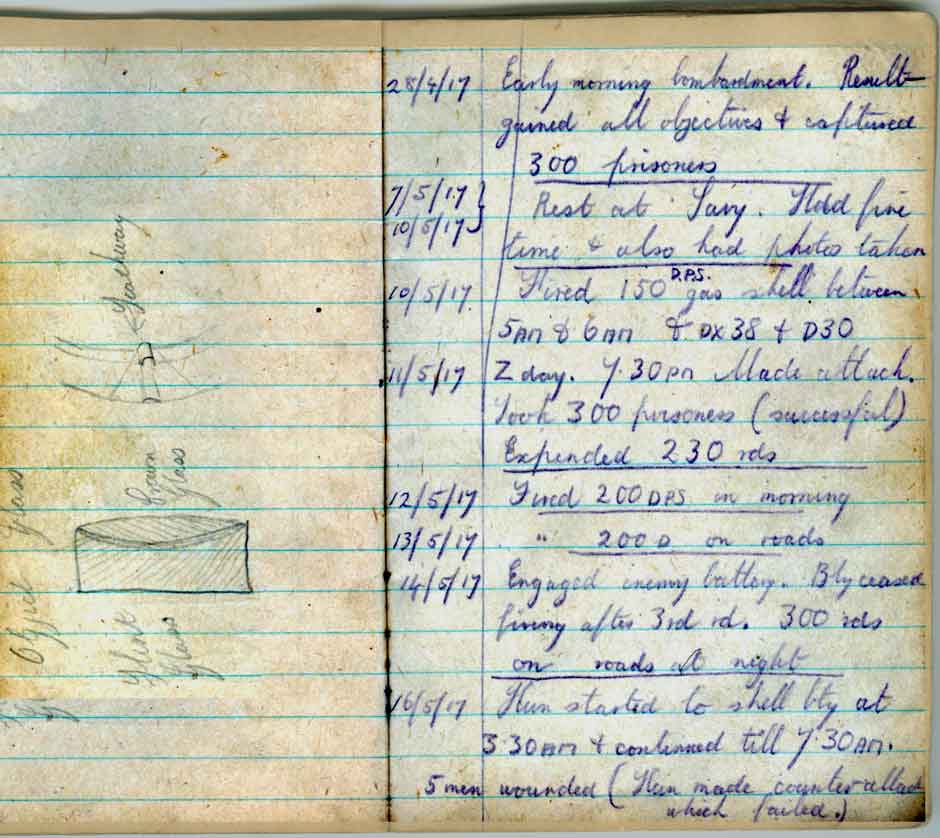 Object Glass
Flint Glass
Crown Glass
28/4/17 Early morning bombardment. Result
gained all objectives & captured
300 prisoners
7/5/17 } Rest at Savy. Had fine
10/5/17 } time & also had photos taken
10/5/17 Fired 150 D.P.S. gas shell between
5AM & 6AM & DX38 & D30
11/5/17 Z day. 7.30PM Made attack.
Took 300 prisoners (successful)
Expended 230 rds
12/5/17 Fired 200 DPS in morning
13/5/17 " 200 D on roads
14/5/17 Engaged enemy battery. Bty ceased
firing after 3rd rd. 300 rds
on roads at night
16/5/17 Hun started to shell bty at
3.30AM & continued till 7.30AM.
5 men wounded (Hun made counter attack
which failed.)